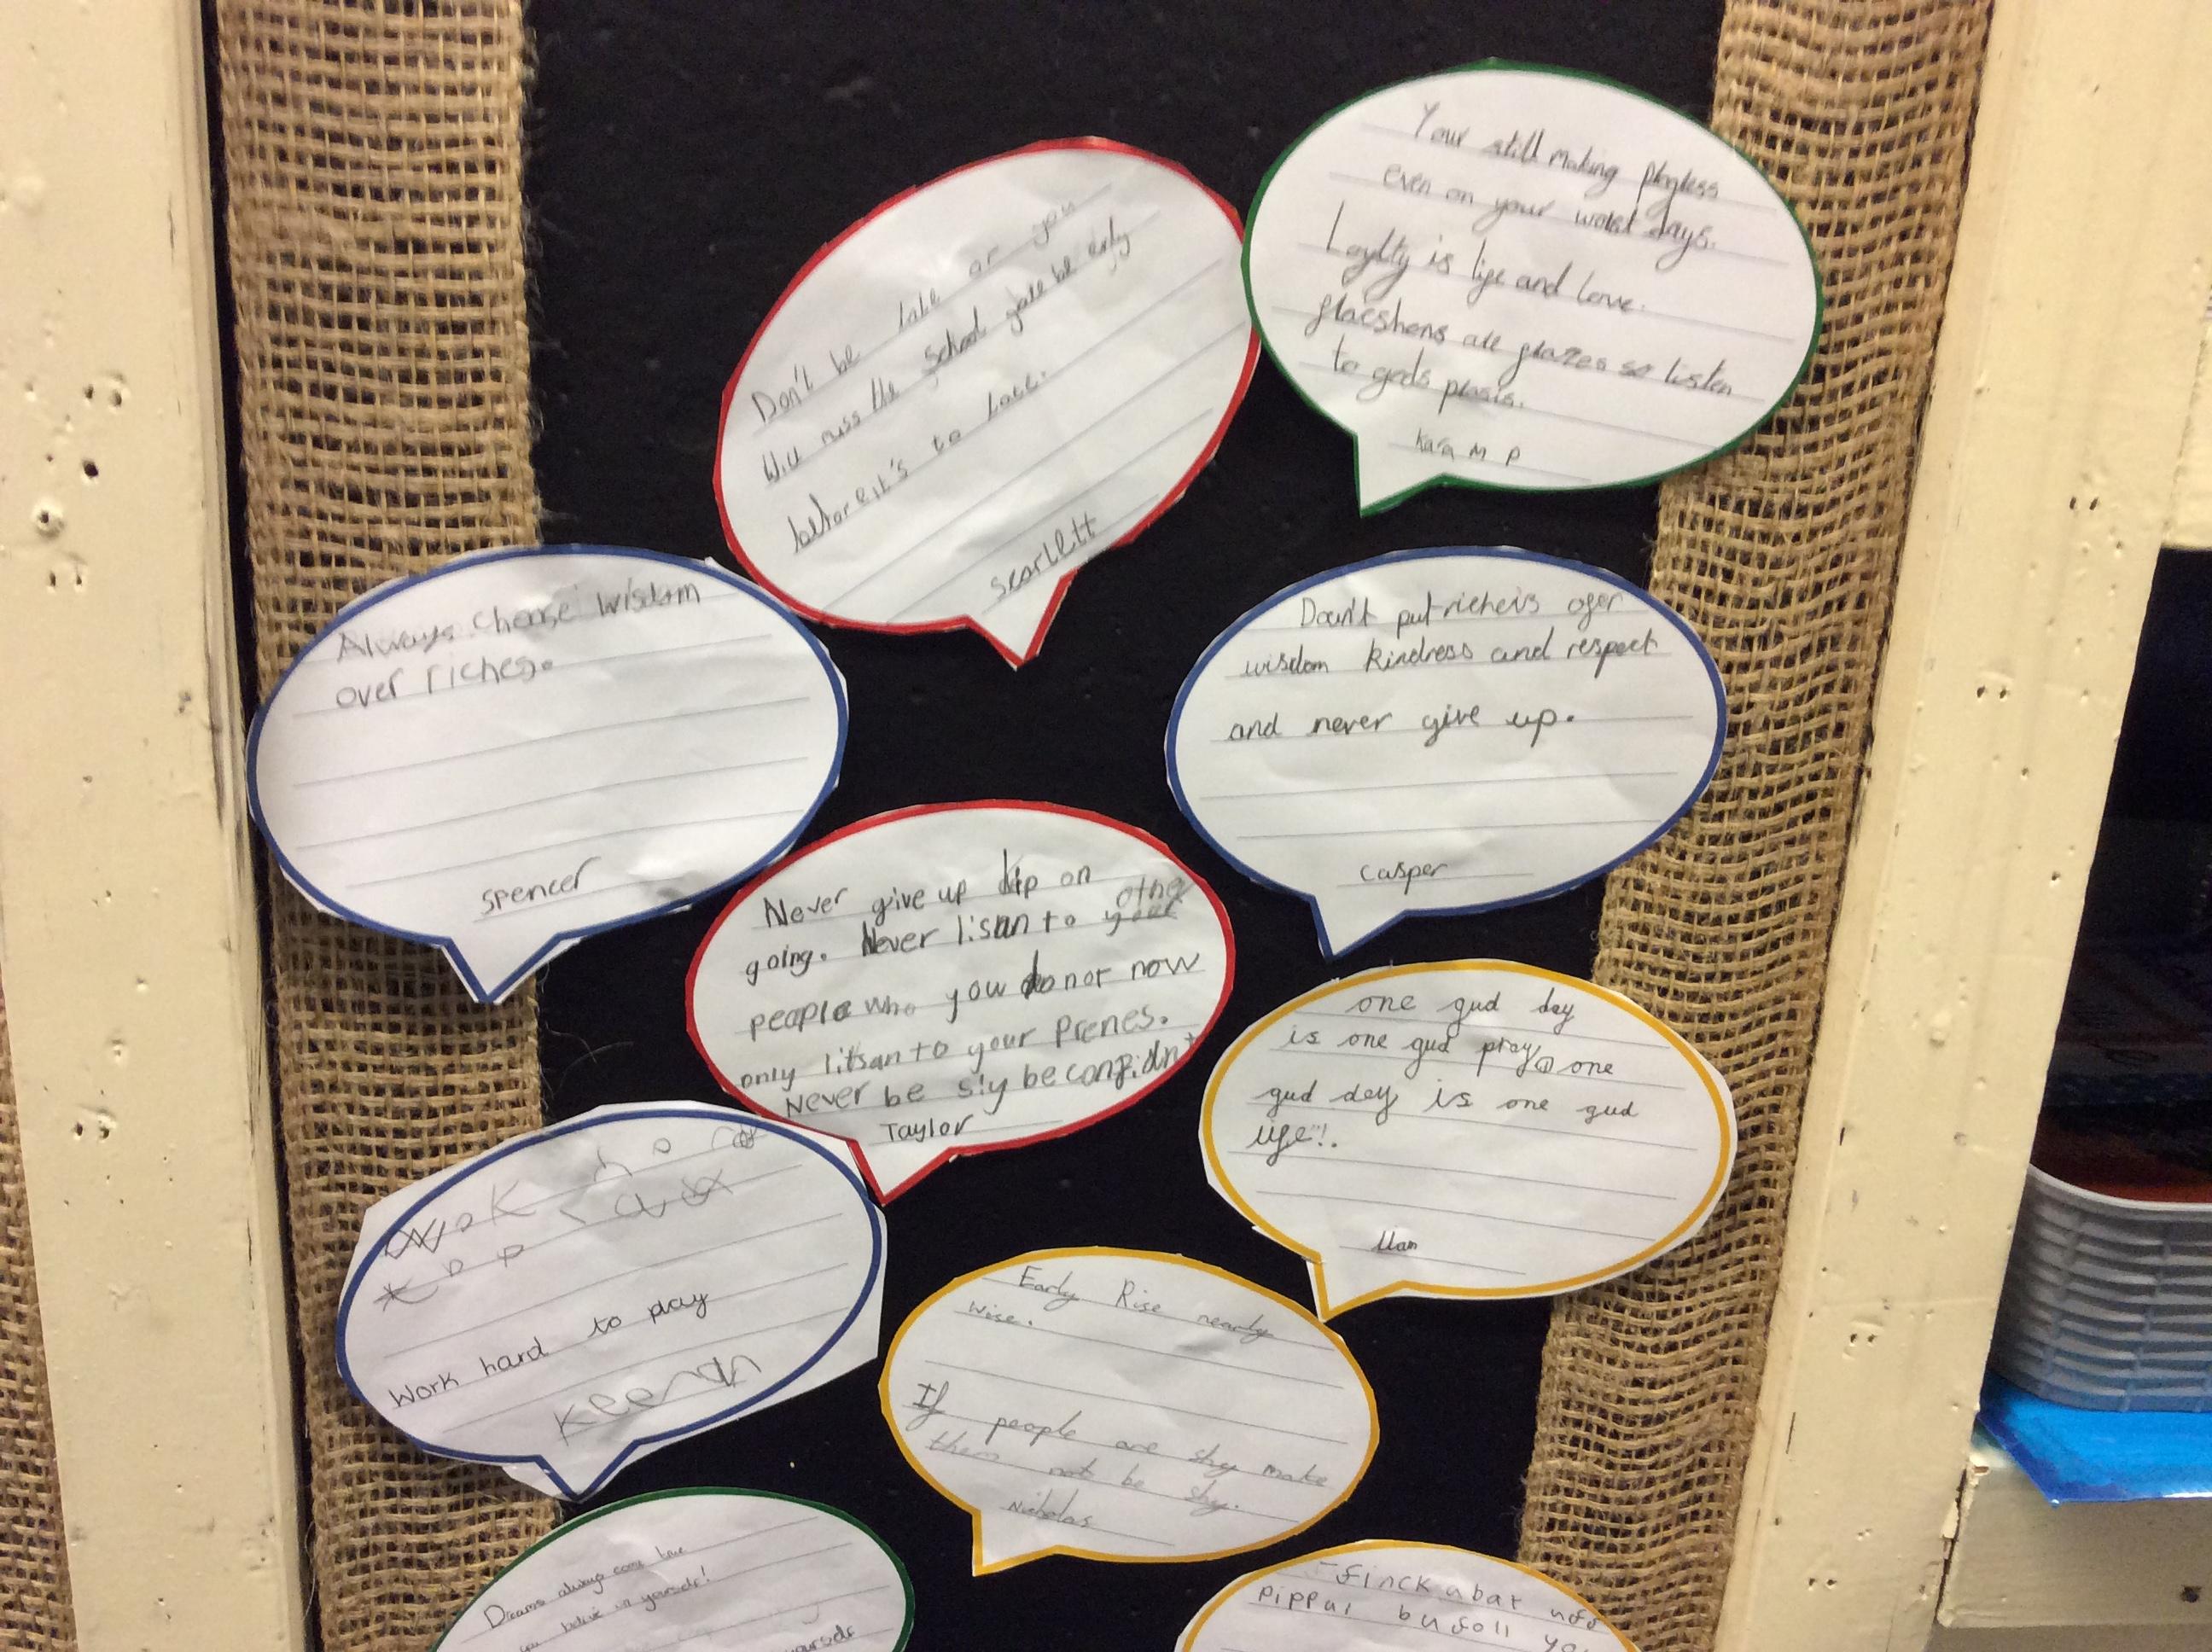 Your still making
even on your worst days.
Loylty is life and love.
so listen
to gods
Kara M P
Don't be late or you
Will miss the school gate be erly
before it's to late.
Scarlett
Always choose wisdom
over riches.
Spencer
put richeis
wisdom kindness and respect
and never give up.
Casper
Never give up kip on
going. Never lisan to othe
people who you do not now
only litsan to your Frenes.
Never be s!y be confidnt
Taylor
one gud day
is one gud pray one
gud dey is one gud
life"!.
Work hard to play
Early Rise nearly
wise.
If people are shy make
them not be shy.
Nicholas
Dreams always come true
you believe in yourself!
yourself
finck abat uff
pippul bufoll yo